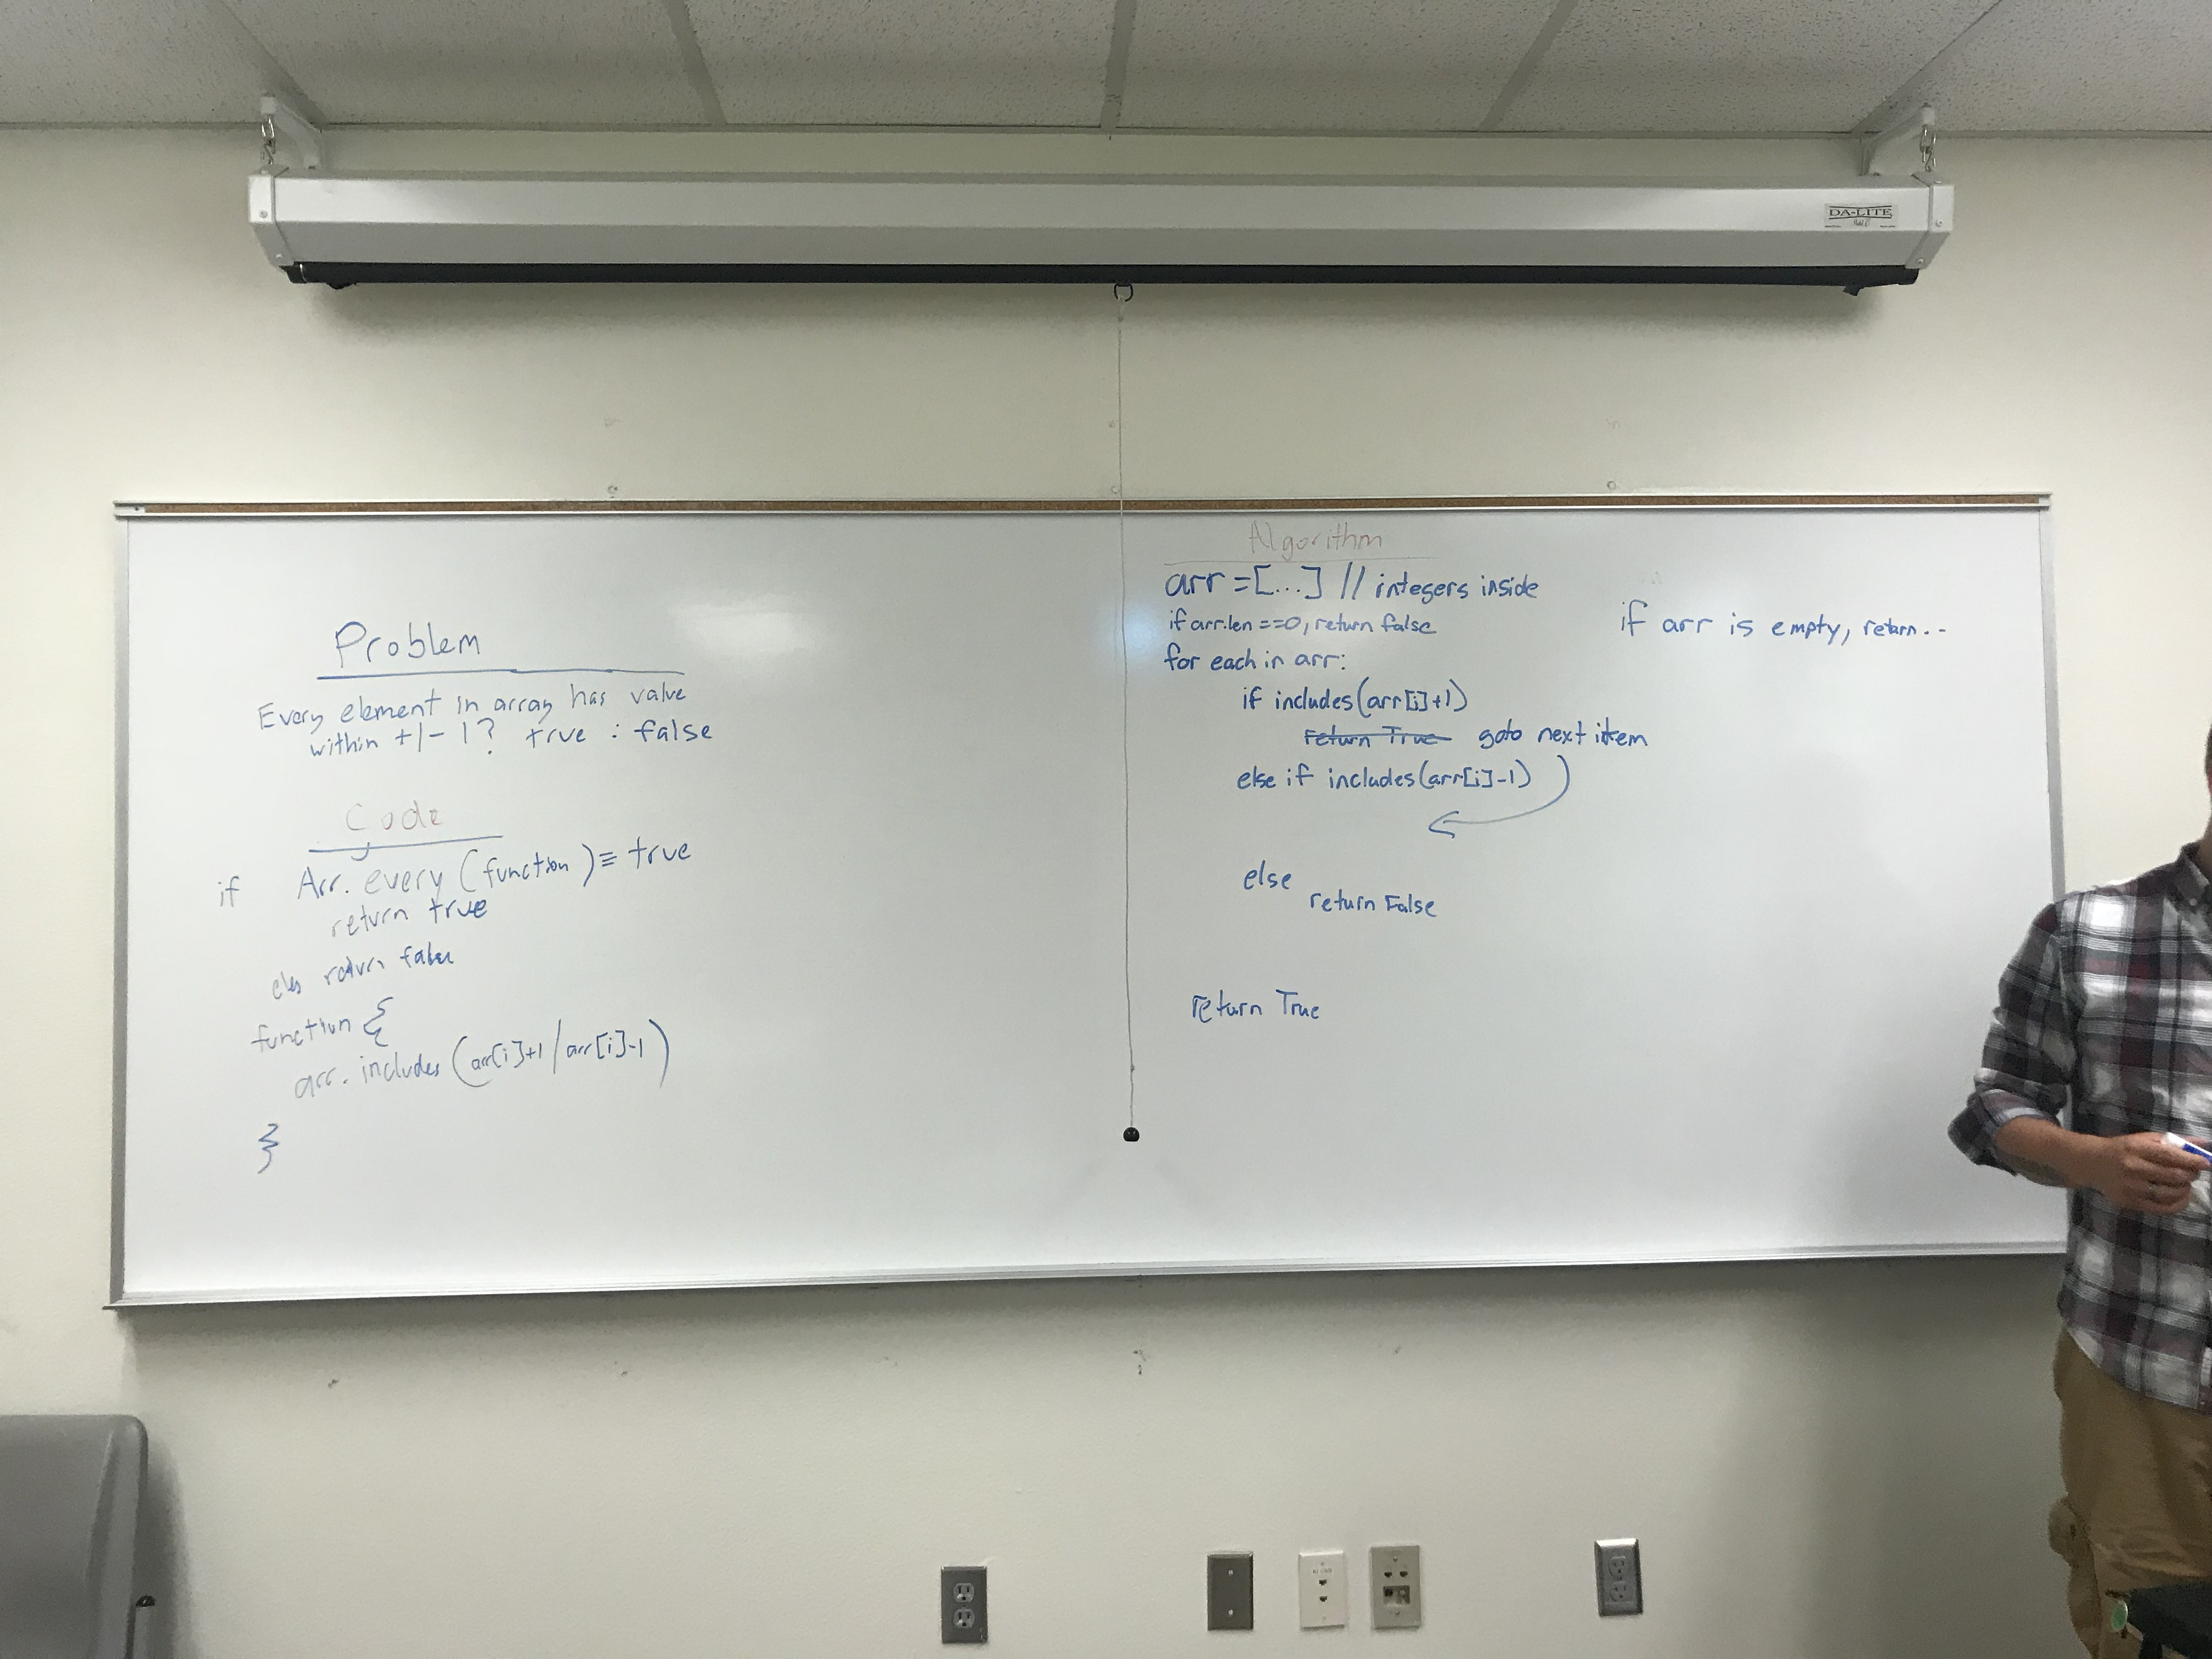 DA-LITE
Problem
Every element in array has value
within +/- 1? true : false
Code
if Arr. every (function) ≡ true
return true
return false
function {
arr. includes (arr[i]+1 / arr[i]-1)
}
Algorithm
arr = [...] // integers inside
if arr.len ==0, return false
for each in arr:
if includes(arr[i]+1)
return True goto next item
else if includes(arr[i]-1)
else
return False
return True
if arr is empty, return..